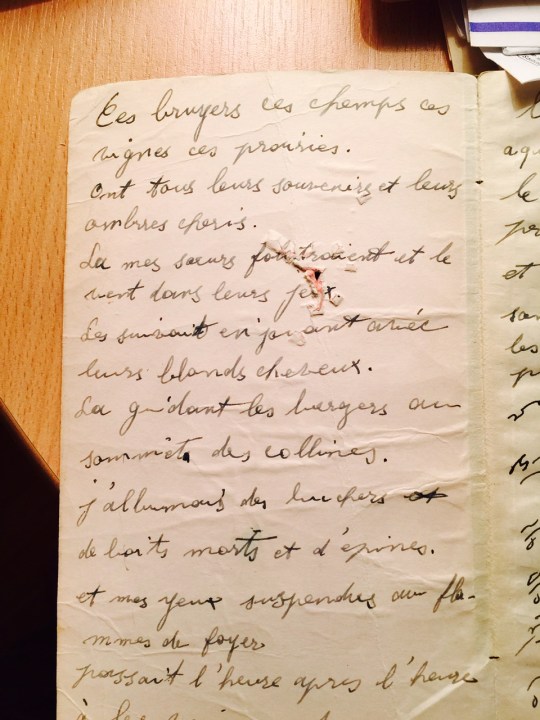 Ces bruyers ces chemps ces
vignes ces prairies.
Ont tous leurs souvenirs et leurs
ombres cheris.
La mes sœurs folatraient et le
vent dans leurs jeux.
Les suivait en jouant avec
leurs blonds cheveux.
La guidant les bergers au
sommêt des collines.
j'allumais des buchers et
de boits morts et d'épines.
et mes yeux suspendus au fla-
mmes de foyer
passait l'heure apres l'heure
à les